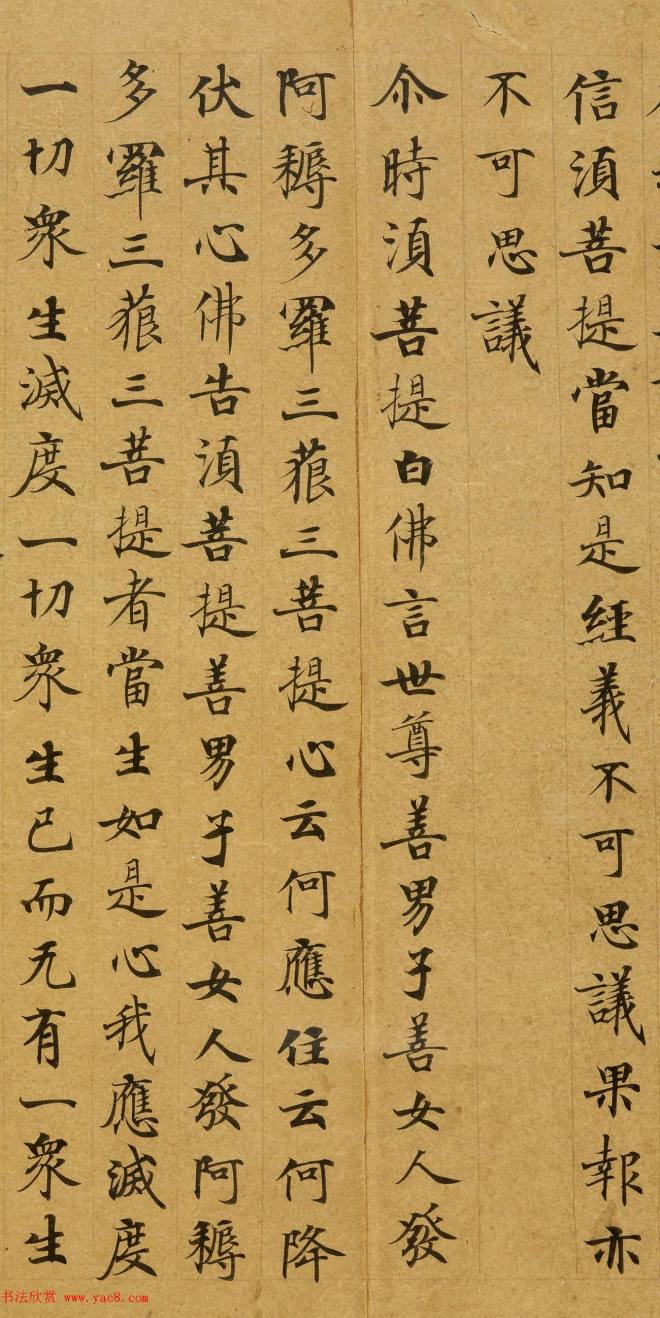 信湏菩提當知是經義不可思議果報亦
不可思議
尒時湏菩提白佛言世尊善男子善女人發
阿耨多羅三藐三菩提心云何應住云何降
伏其心佛告湏菩提善男子善女人發阿耨
多羅三藐三菩提者當生如是心我應滅度
一切衆生滅度一切衆生已而无有一衆生
书法欣赏 www.yac8.com